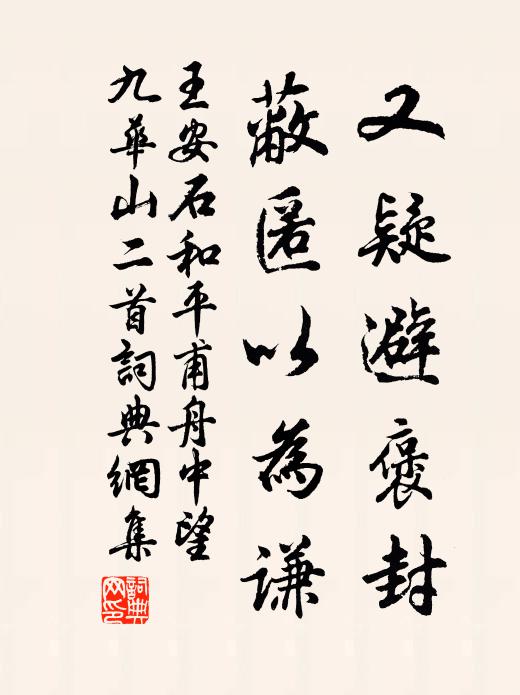 又疑避褒封
蔽匿以為謙
王安石和平甫舟中望
九華山二首詞典網集
詞典網印